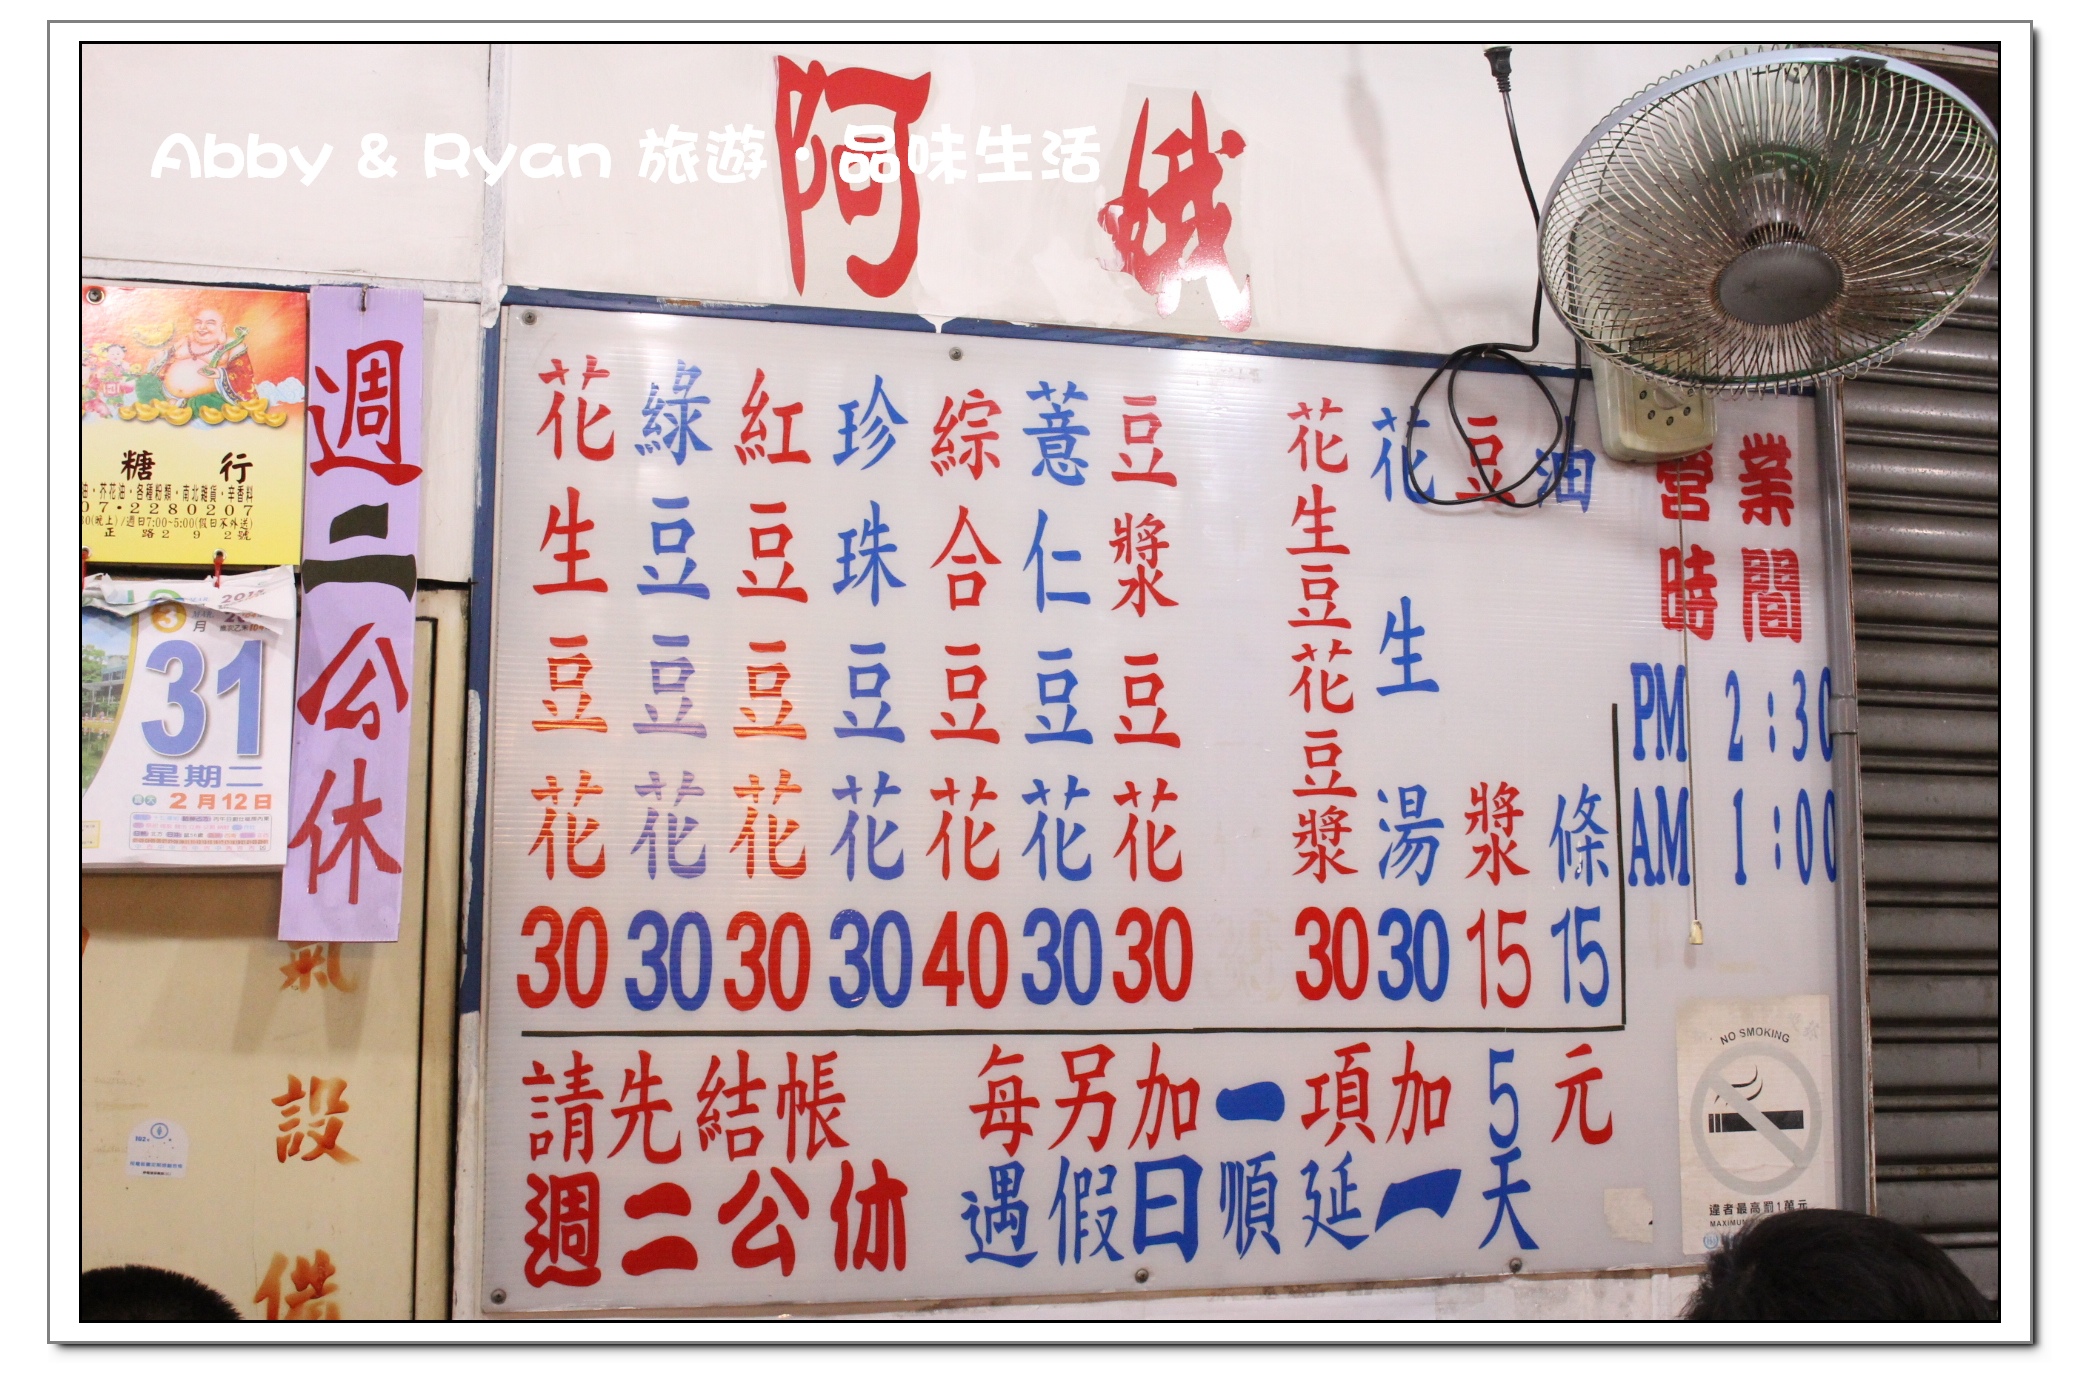 Abby & Ryan 旅遊・品味生活
阿娥
糖行
油・芥花油・各種粉類・南北雜貨・辛香料
07・2280207
30(晚上)/週日7:00~5:00(假日不外送)
正路292號
週二公休
3
月
31
星期二
2月12日
氣設備
花生豆花 30
綠豆豆花 30
紅豆豆花 30
珍珠豆花 30
綜合豆花 40
薏仁豆花 30
豆漿豆花 30
花生豆花豆漿 30
花生湯 30
豆漿 15
油條 15
營業時間
PM 2:30
AM 1:00
請先結帳 每另加一項加5元
週二公休 遇假日順延一天
NO SMOKING
違者最高罰1萬元